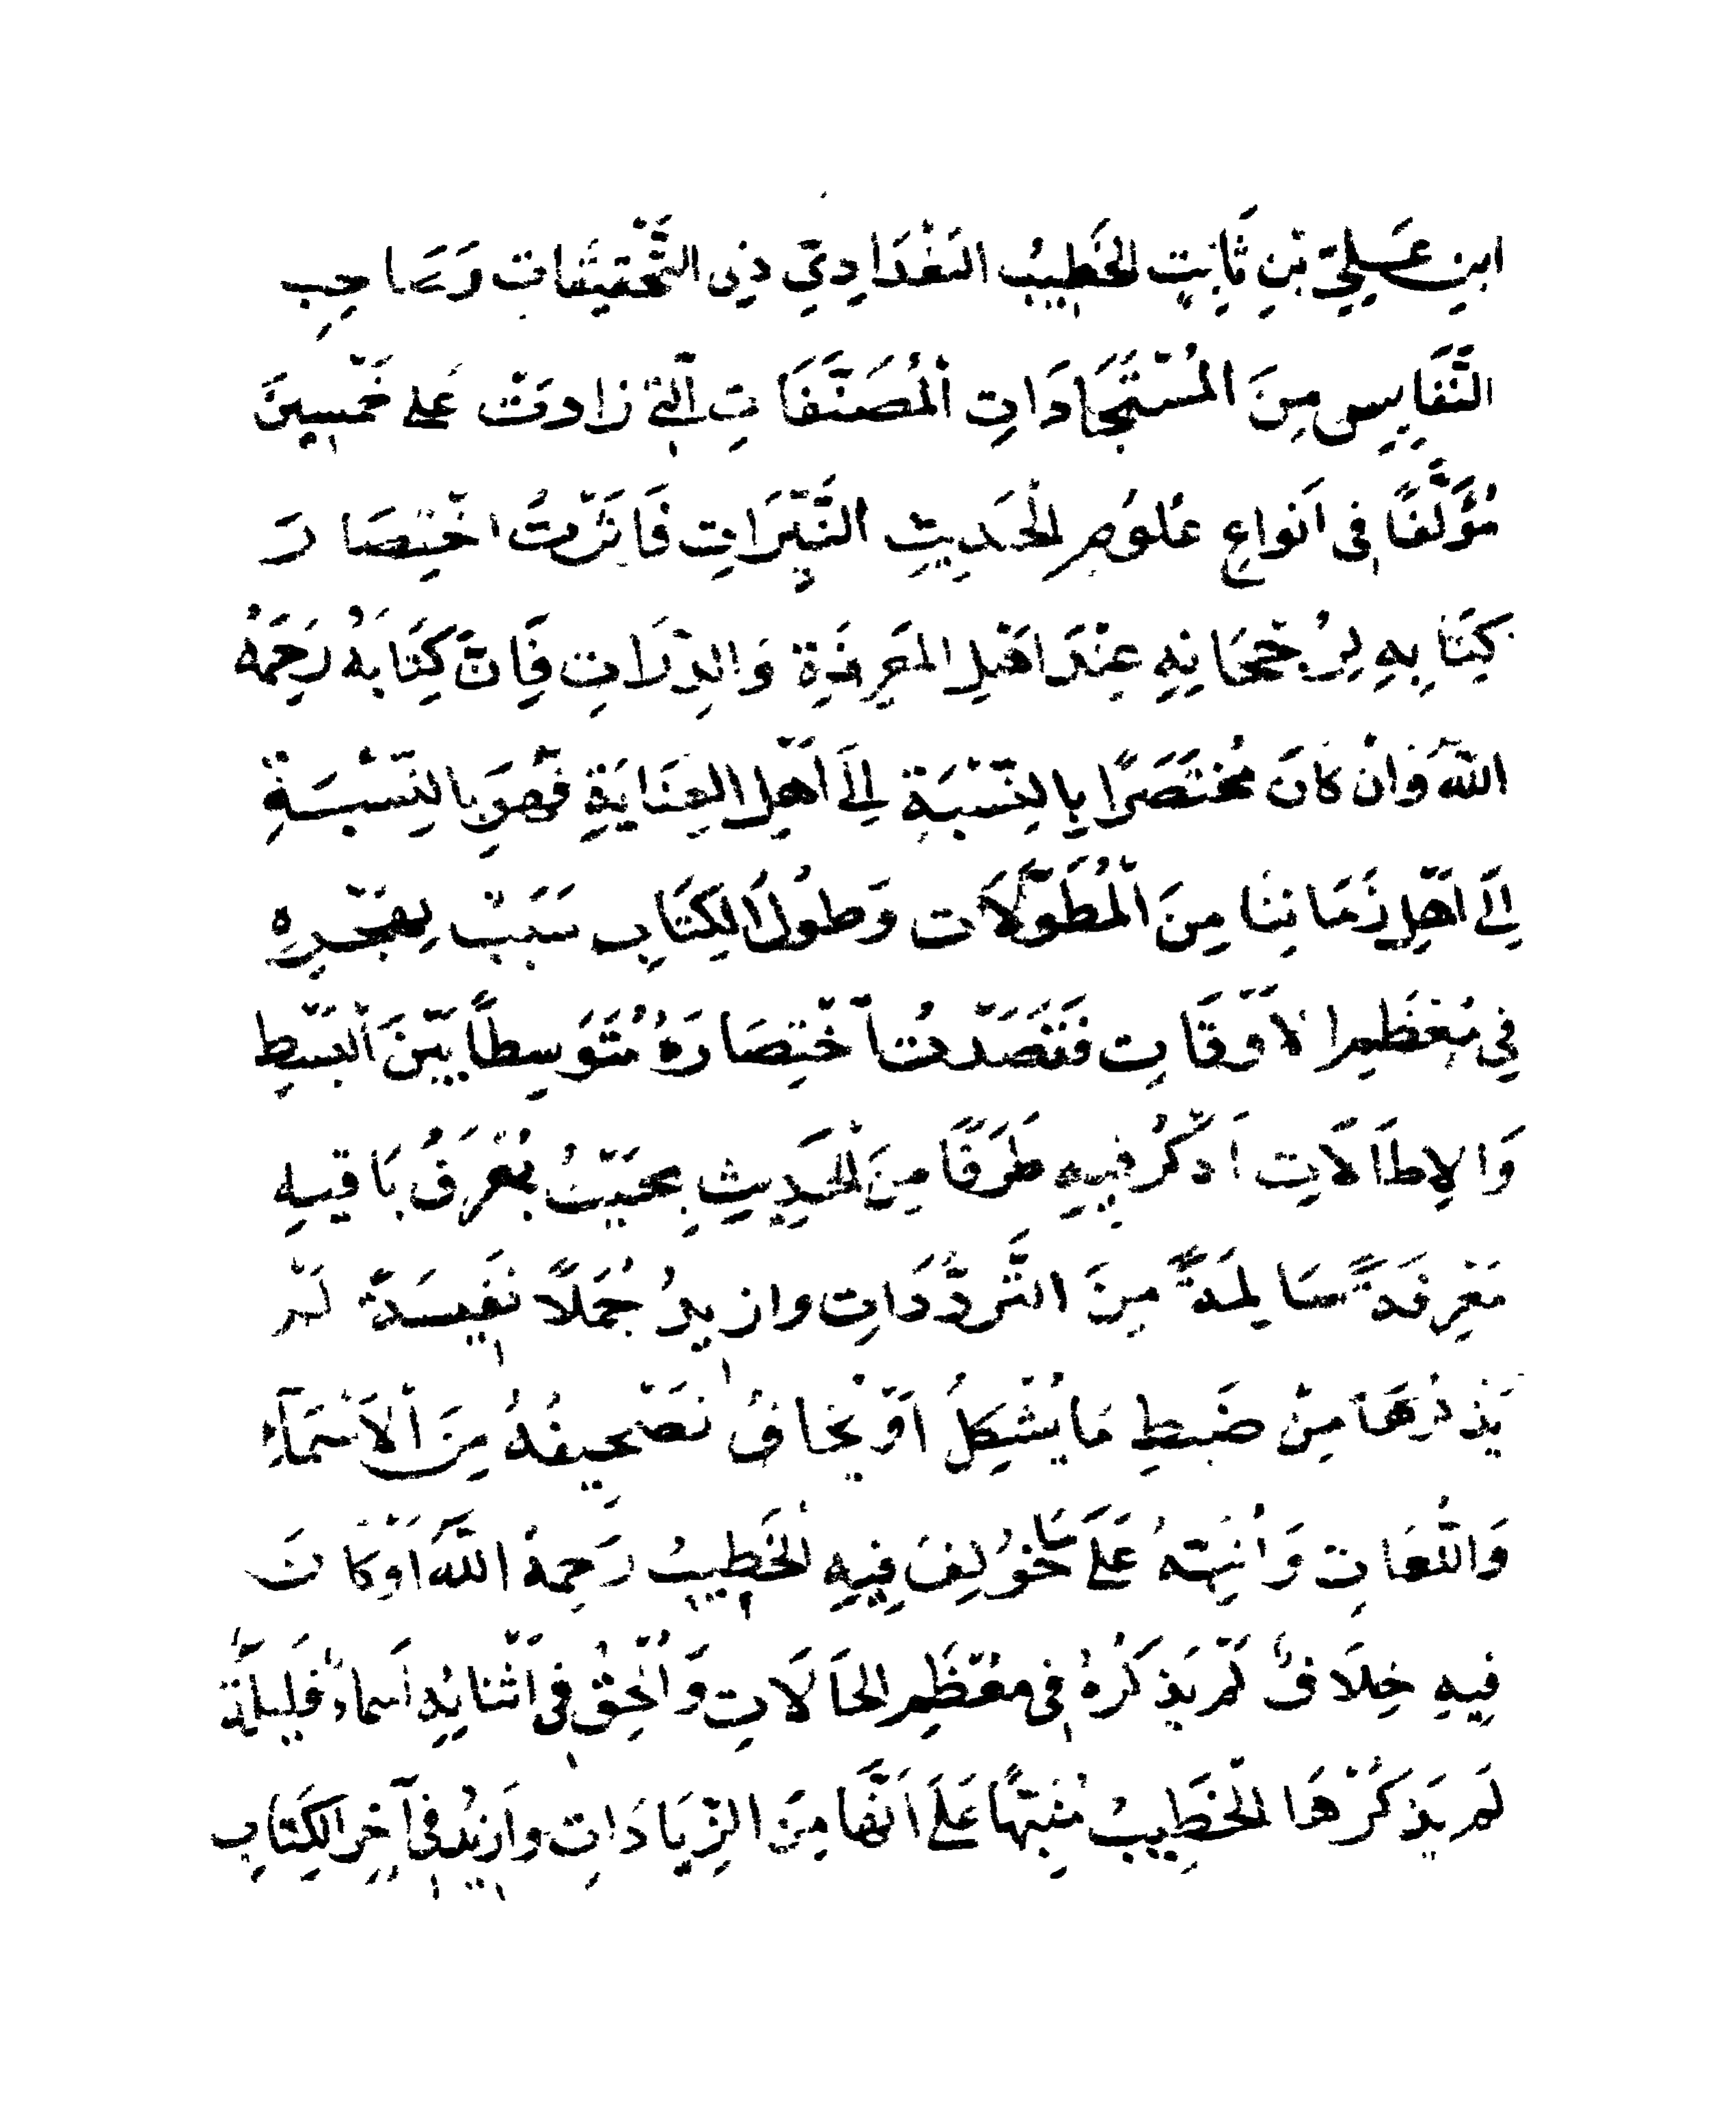 ابنِ عَلِيّ بْنِ ثَابِتٍ الخَطِيبُ البَغْدَادِيّ ذِى التَّحْقِيقَاتِ وَصَاحِبِ
النَّفَايِسِ مِنَ المُسْتَجَادَاتِ اْلمُصَنَّفَاتِ اَلَّتِى زَادَتْ عَلى خَمْسِينَ
مُؤَلَّفًا فى اَنواعِ عُلوُمِ اْلحَدِيثِ النَّيِّرَاتِ فَاثَرْتُ اخْتِصَارَ
كِتَابِهِ لِرُجْحَانِهِ عِنْدَ اَهْلِ المَعْرِفَةِ وَالدِّرَاتِ فَإِنَّ كِتَابَهُ رَحِمَهُ
اللهُ وَإنْ كَانَ مُخْتَصَرًا بِالنِّسْبَةِ إِلَى اَهْلِ العِنَايَةِ فَهْوَ بِالنِّسْبَةِ
إِلَى اَهْلِ زَمَانِنَا مِنَ اْلمُطَوَّلَات وَطُولُ الكِتَابِ سَبَبٌ لِهَجْرِهِ
فِي مُعْظَمِ الاَوْقَاتِ فَقَصَدْتُ اخْتِصَارَهُ مُتَوَسِطًا بَيْنَ اْلبَسْطِ
وَالاِطَالَاتِ اَذْكُرُ فِيهِ طَرَفًا مِنَ اْلحَدِيثِ بِحَيْثُ يُعْرَفُ بَاقيهِ
مَعْرِفَةً سَالِمَةً مِنَ التَّرَدُّدَاتِ وازيدُ جُمَلًا نَفِيسَةً لَمْ
يَذْكُرْهَا مِنْ ضَبطِ مَا يُشْكِلُ اَوْ يُخَافُ تَصْحِيفُهُ مِنَ اْلاَسْمَآءِ
وَاللُّغَاتِ وَاُنَبِّهُ عَلَى مَا خُولِفَ فِيهِ اْلخَطِيبُ رَحِمهُ اللَّهُ اَوْكَانَ
فِيهِ خِلَافٌ لَمْ يَذكُرْهُ فى مُعْظَمِ الحَالَاتِ وَاُلْحِقُ فى اَثْنَائِهِ اَسماءً قَلِيلَةً
لَم يَذكُرْهَا اْلخَطِيبُ مُنَبِّهًا عَلَى اَنَّهَا مِنَ الزِّيَادَاتِ وازِيدُ فى آخِرِ الكِتَابِ